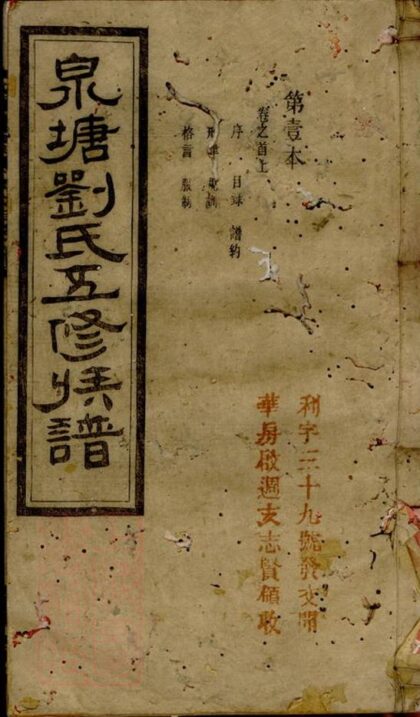 泉塘劉氏五修族譜
第壹本
卷之首上
序 目錄 譜約
家訓
格言 服制
利字三十九號發交開
華房啟週玄志賢領收